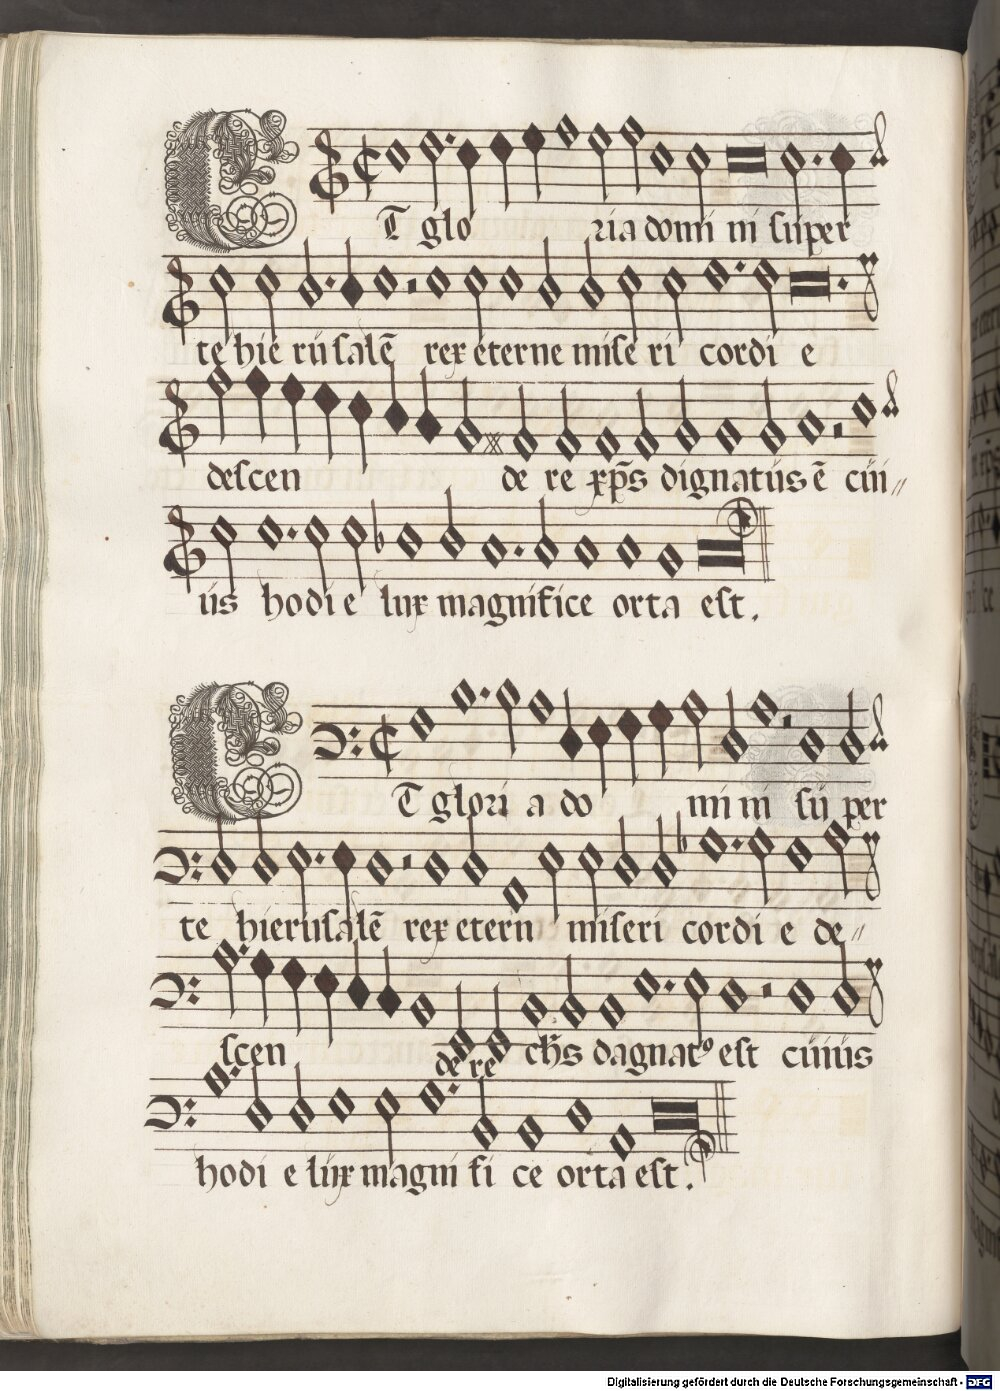 ET glo ria domi ni super
te hie rusalē rex eterne mise ri cordi e
descen de re xp̄s dignatus ē cui〃
us hodi e lux magnifice orta est.
ET glori a do mini su per
te hierusalē rex etern miseri cordi e de〃
scen de re ch̄s dagnatꝰ est cuius
hodi e lux magni fi ce orta est.
Digitalisierung gefördert durch die Deutsche Forschungsgemeinschaft - DFG